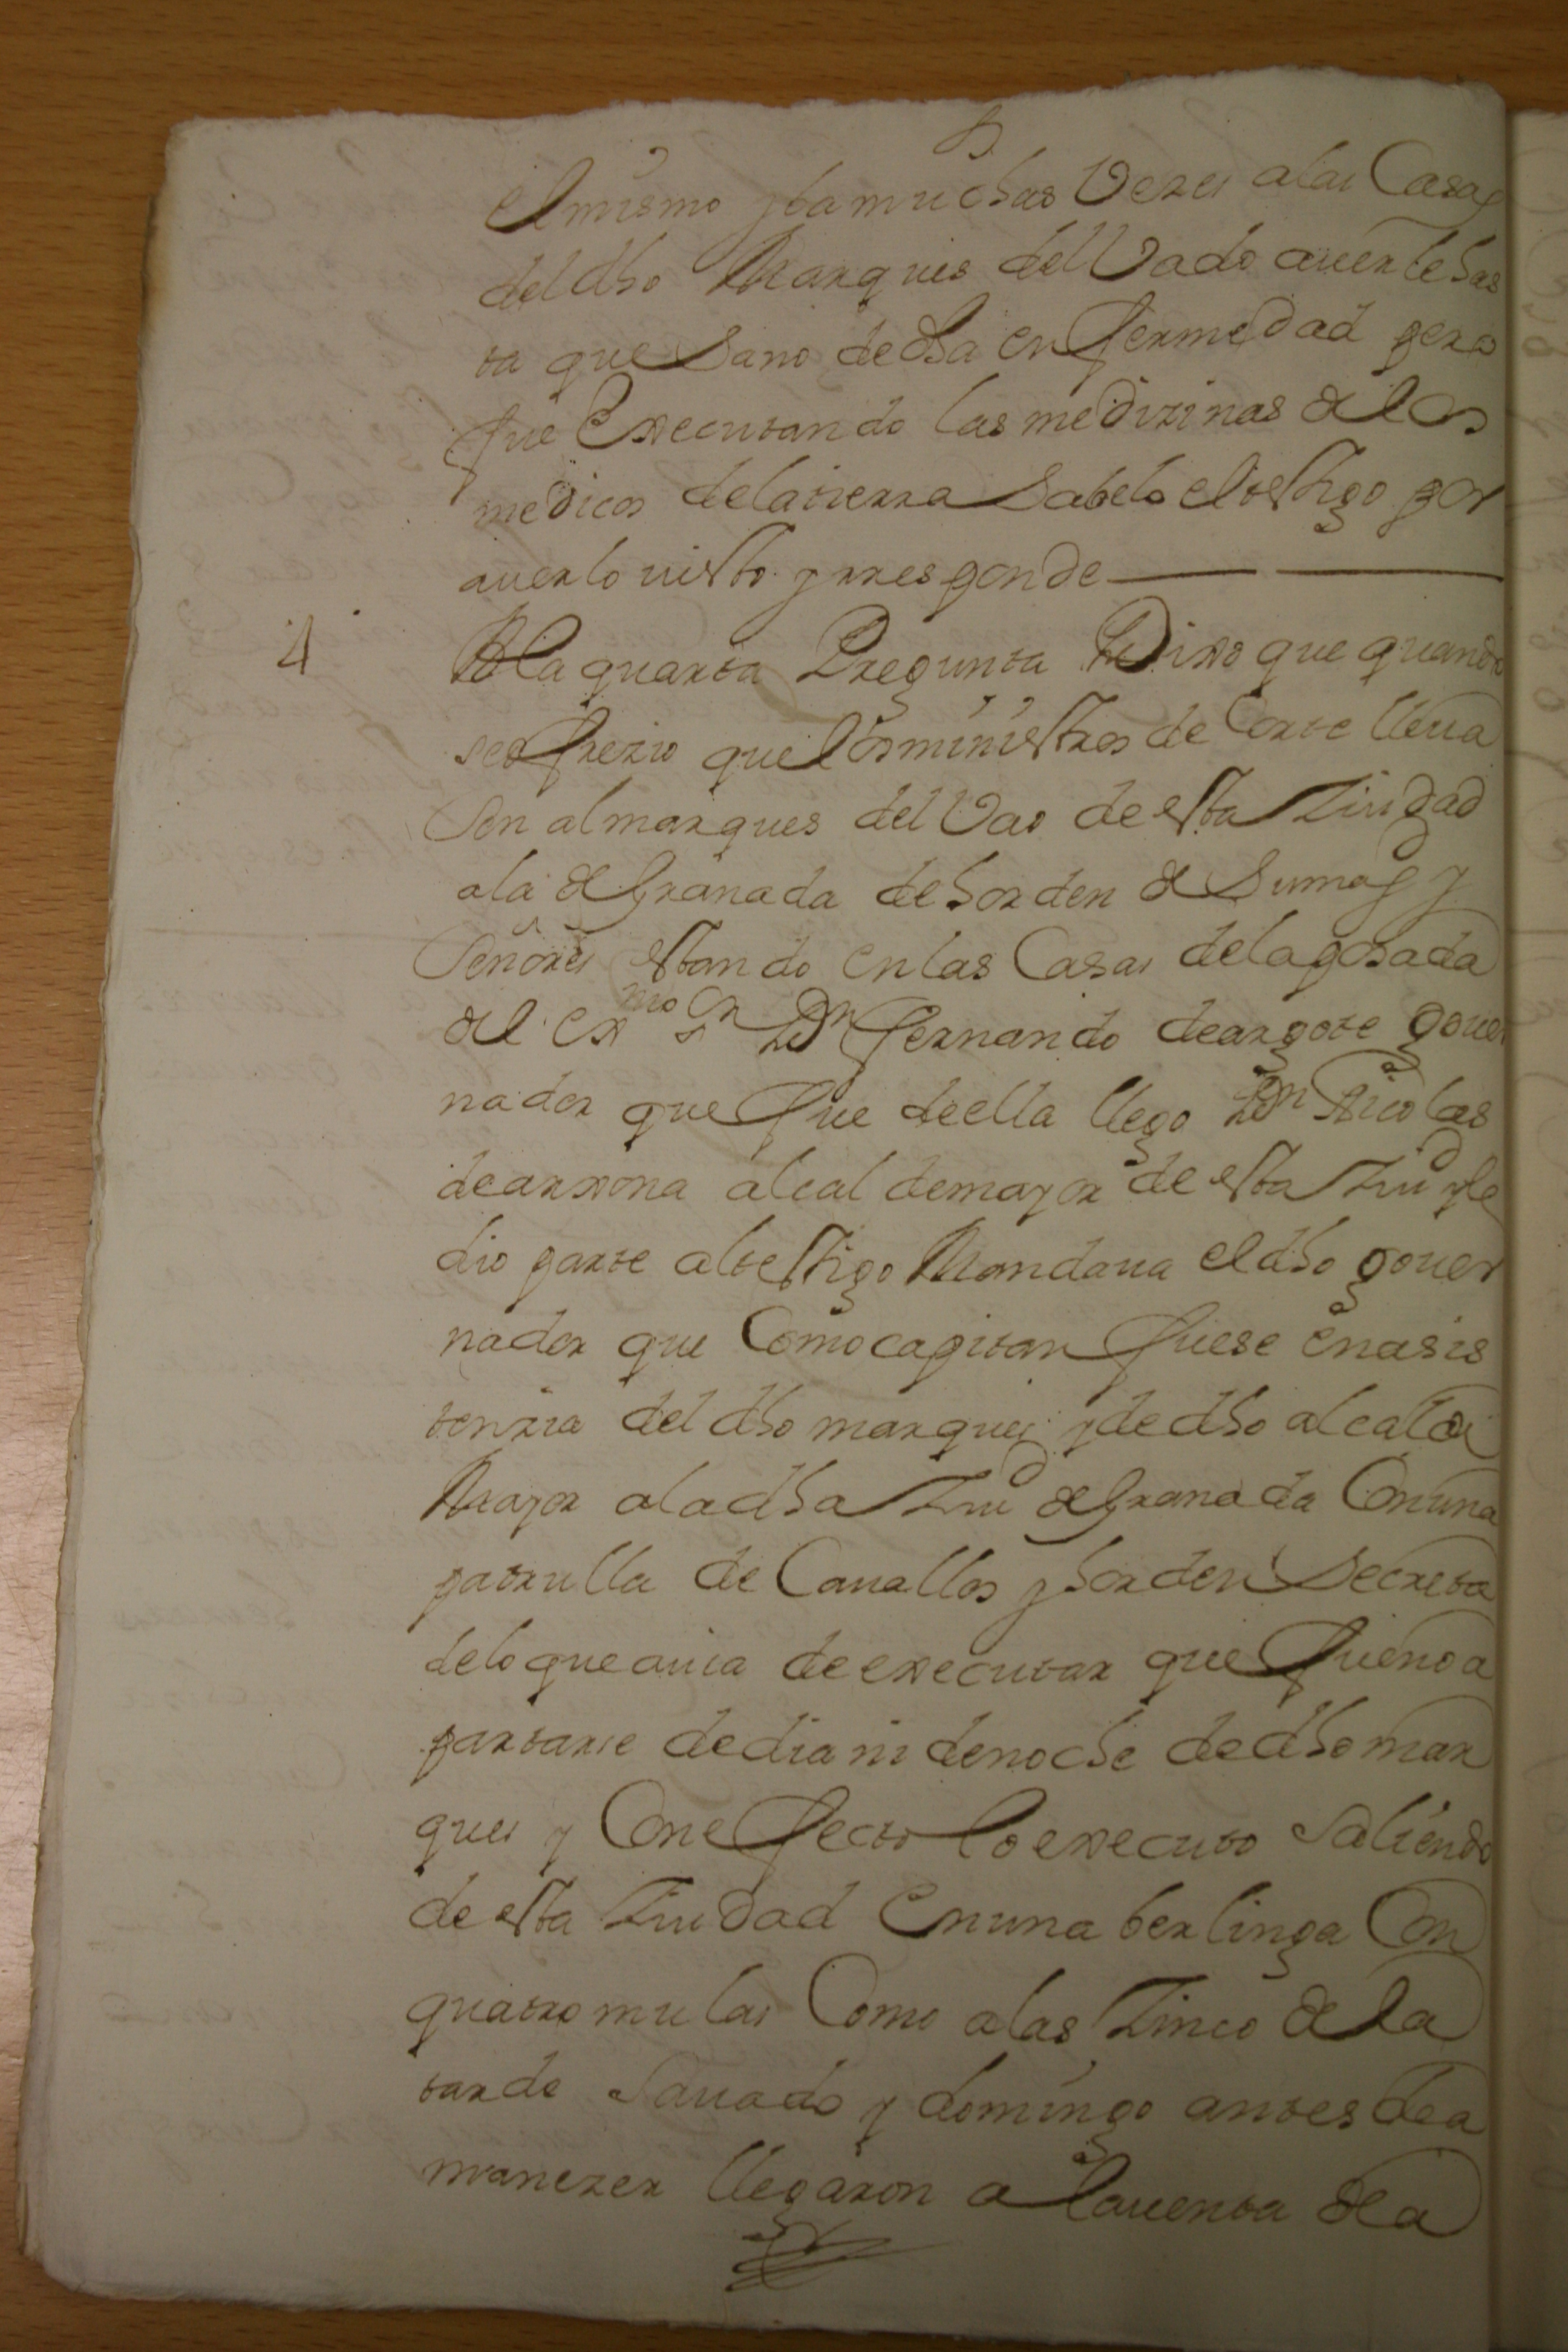 el mismo yba muchas Vezes alas Casas
del dho Marques del Vado auerle has
ta que Sano de dha enfermedad pero
fue Executando las medizinas de los
medicos delatierra Sabelo eltestigo por
auerlo uisto y rresponde
4 Ala quarta Pregunta Dixo que quando
seofrezio que los ministros de Corte lleua
sen almarques del Vao de esta Ziudad
ala de Granada dehorden de Sumagd y
Señores estando enlas Casas delaposada
del exmo sr Dn fernando deargote gouer
nador que fue deella llego Dn Nicolas
dearxona alcaldemayor de esta Ziud yle
dio parte altestigo Mandaua eldho gouer
nador que Como capitan fuese enasis
tenzia del dho marques y de dho alcalde
Mayor aladha Ziud de Granada Conuna
patrulla de Cauallos y horden Secreta
delo que auia deexecutar que fue no a
partarse dedia ni denoche dedho mar
ques y Conefecto loexecuto saliendo
de esta Ziudad enuna berlinga Con
quatro mulas Como alas Zinco de la
tarde Sauado y domingo antes dea
manezer llegaron a lauenta de la